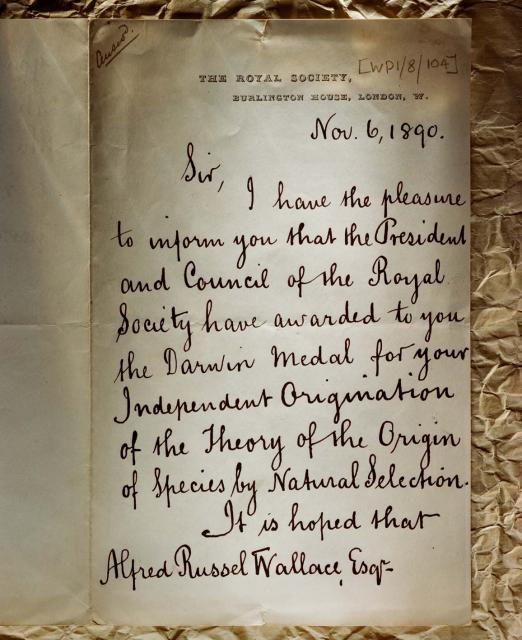 Answd.
[WP1/8/104]
THE ROYAL SOCIETY,
BURLINGTON HOUSE, LONDON, W.
Nov. 6, 1890.
Sir,
I have the pleasure
to inform you that the President
and Council of the Royal
Society have awarded to you
the Darwin Medal for your
Independent Origination
of the Theory of the Origin
of Species by Natural Selection.
It is hoped that
Alfred Russel Wallace, Esqr.